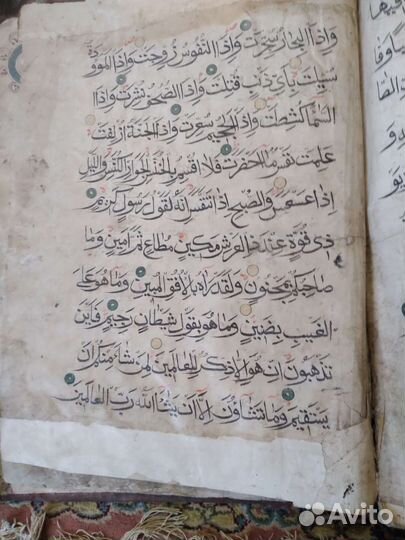 واذا البحار سجرت واذا النفوس زوجت واذا الموودة
سيلت باي ذنب قتلت واذا الصحف نشرت واذا
السما كشطت واذا الجحيم سعرت واذا الجنة ازلفت
علمت نفس ما احضرت فلا اقسم بالخنس الجوار الكنس والليل
اذا عسعس والصبح اذا تنفس انه لقول رسول كريم
ذي قوة عند ذي العرش مكين مطاع ثم امين وما
صاحبكم بمجنون ولقد راه بالافق المبين وما هو على
الغيب بضنين وما هو بقول شيطان رجيم فاين
تذهبون ان هو الا ذكر للعالمين لمن شاء منكم ان
يستقيم وما تشاؤن الا ان يشا الله رب العالمين
Avito